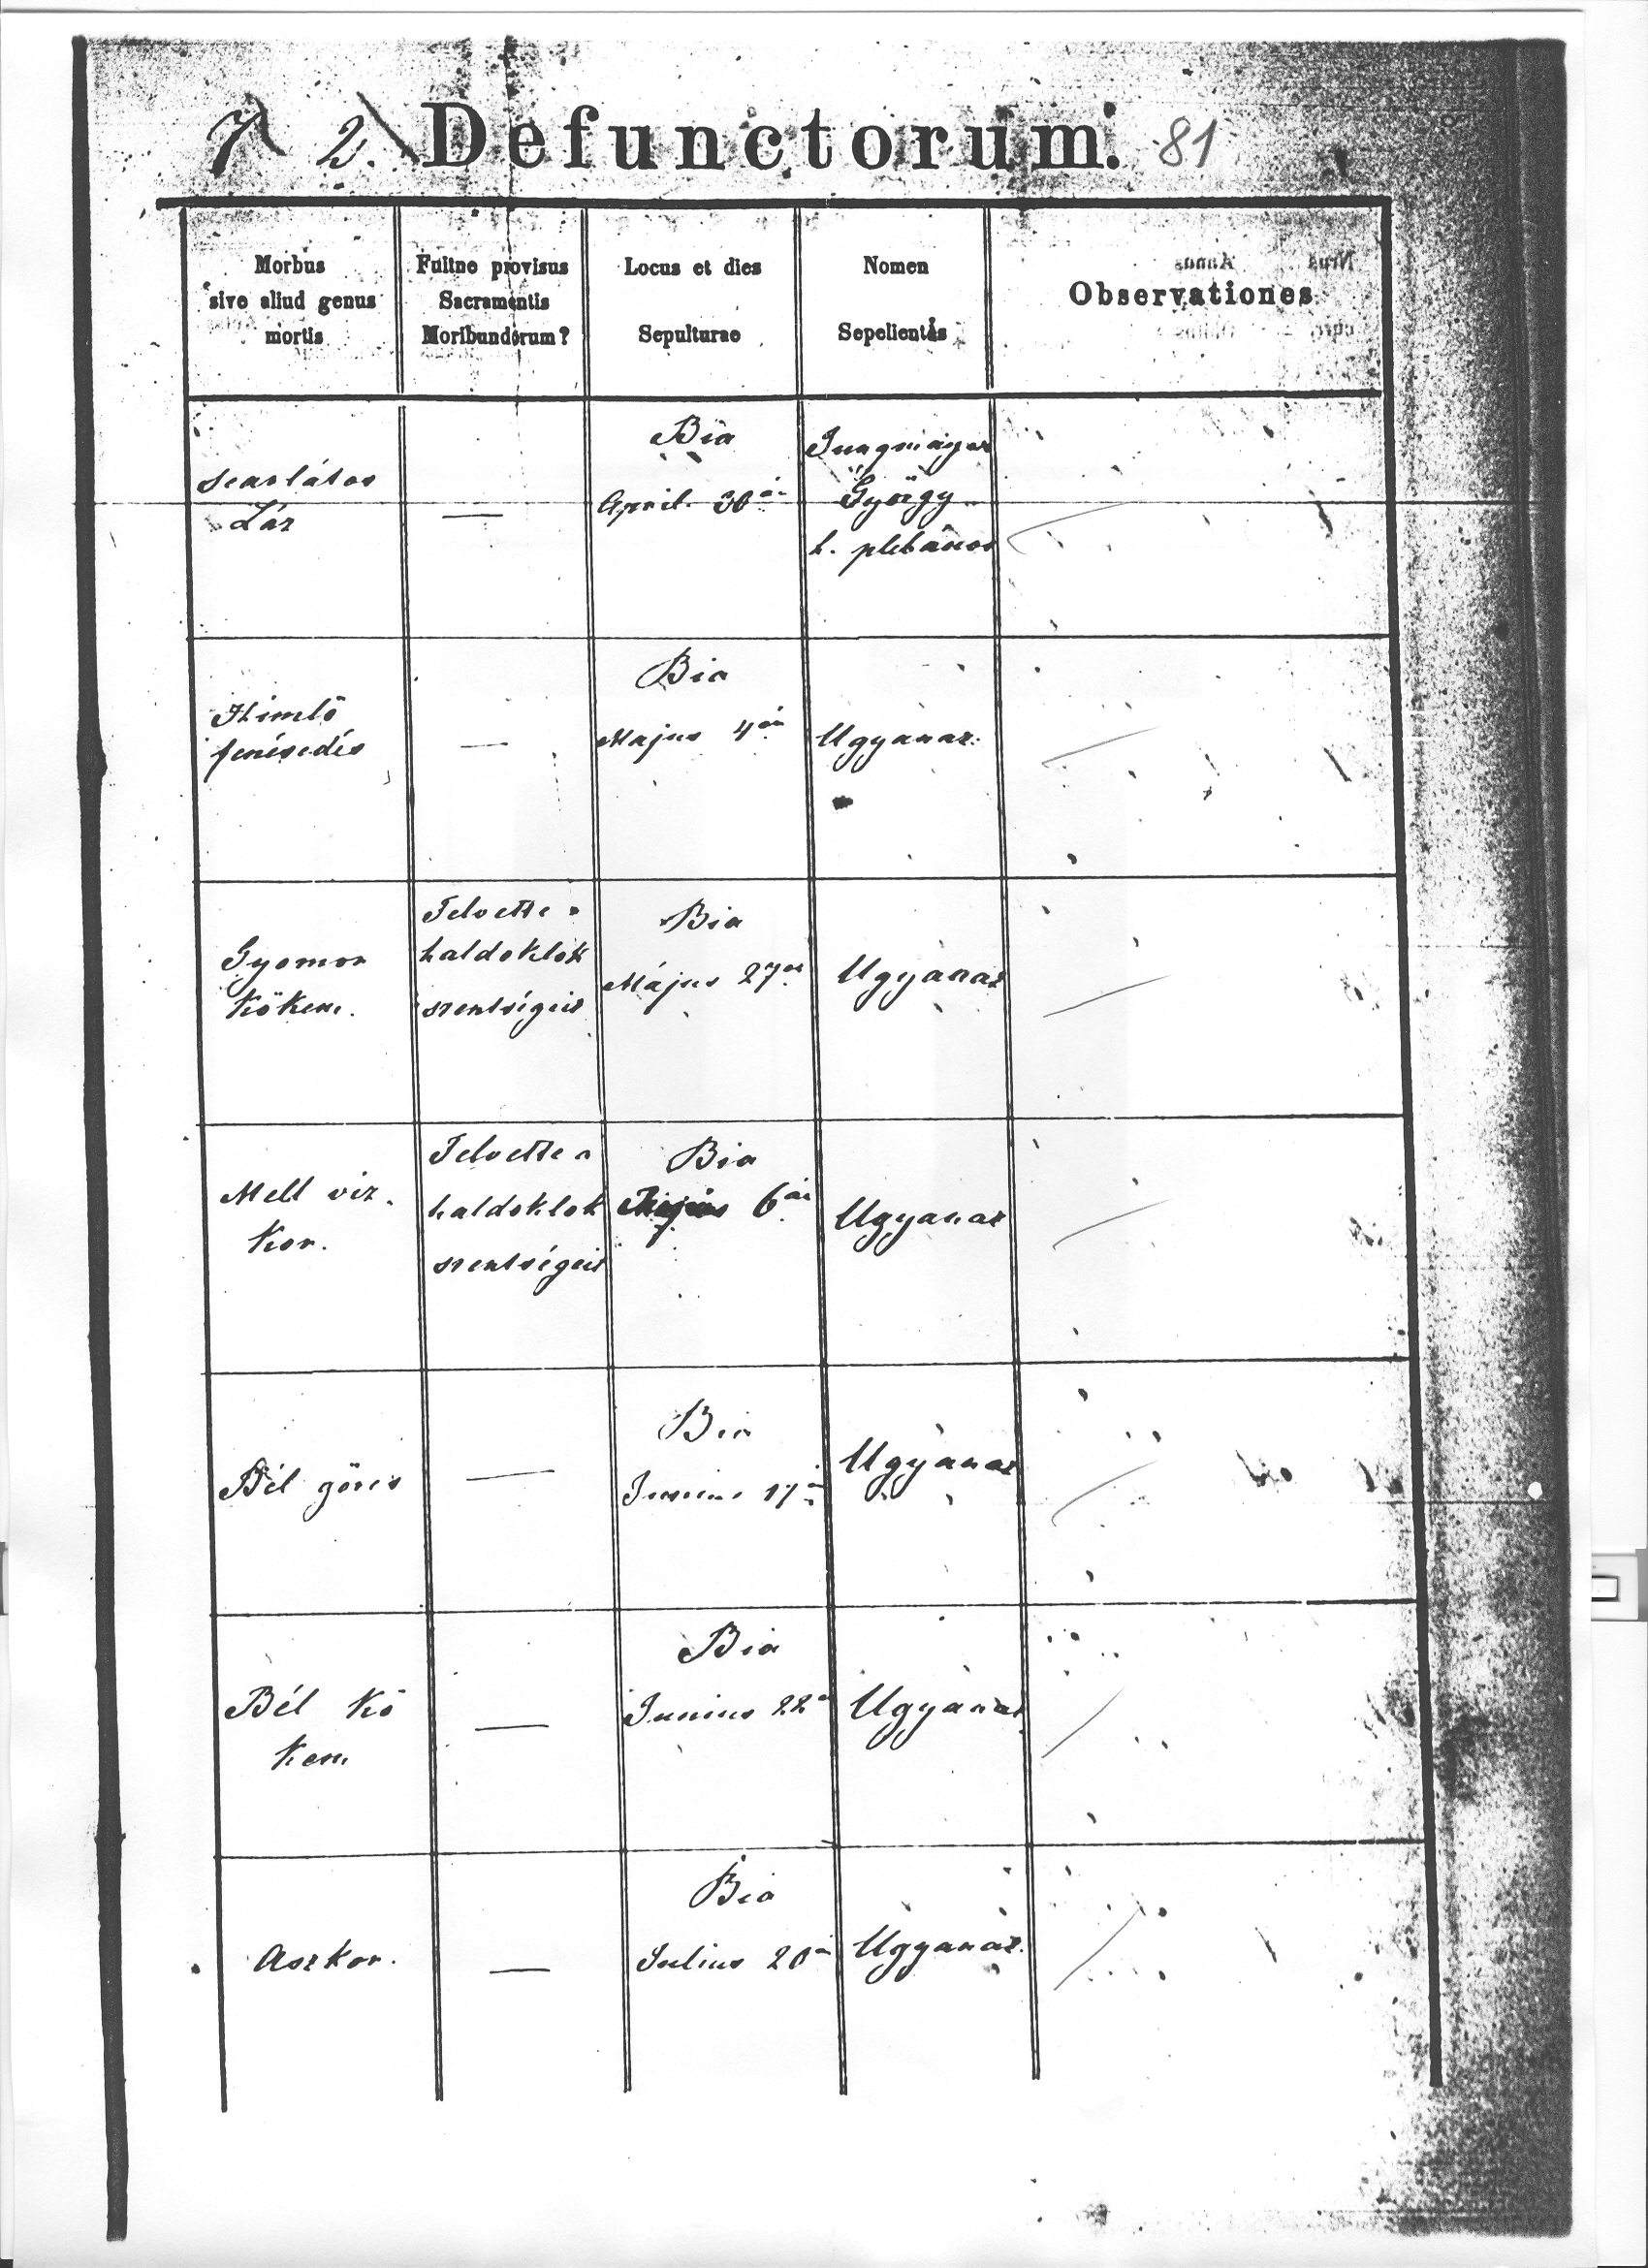 7 2. Defunctorum. 81
Morbus
sive aliud genus
mortis
Fuitne provisus
Sacramentis
Moribundorum?
Locus et dies
Sepulturae
Nomen
Sepelientis
Observationes
scarlátos
Láz
—
Bia
April. 30án
Jungmayer
György
h. plébános
Himlő
fenésedés
—
Bia
Majus 4én
Ugyanaz.
Gyomor
Kőkem.
Felvette a
haldoklok
szentségeit
Bia
Május 27én
Ugyanaz
Mell viz-
Kor.
Felvette a
haldoklok
szentségeit
Bia
6án
Ugyanaz
Bél görcs
—
Bia
Junius 17én
Ugyanaz
Bél Kő
Kem
—
Bia
Junius 22
Ugyanaz
Aszkor.
—
Bia
Julius 20án
Ugyanaz.